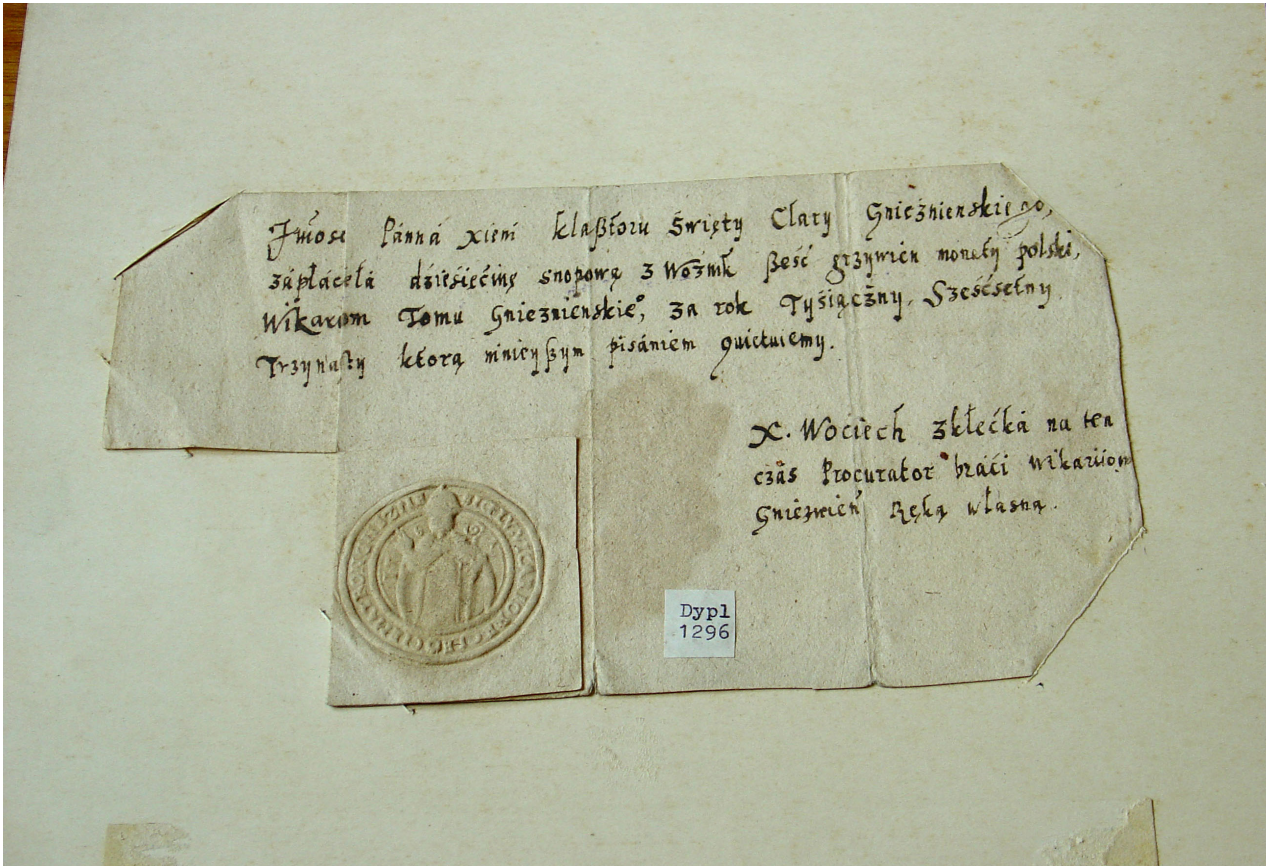 Jmość Panná Xieni klaßtoru Święty Clary Gnieźnienskiego,
zápłáceła dziesięćinę snopową z Woźnik ßeść grzywien monety polski,
Wikarom Tomu Gnieznienskie°, za rok Tyśiączny. Sześćsetny
Trzynasty ktorą ninieyßym pisániem quictuiemy.
X. Wociech zkłećka na ten
czás Procurator braći Wikariiow
Gnieznień Ręką własną.
Dypl
1296